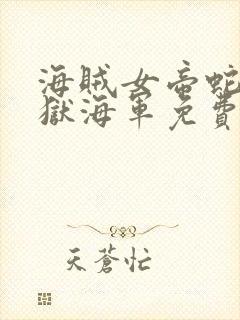 海賊女帝蛇
獄海軍免費
天蒼忙